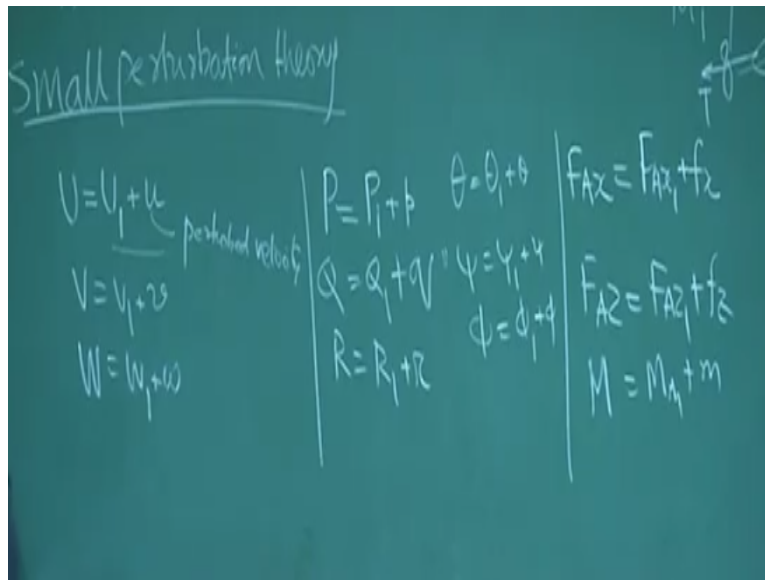 Small perturbation theory
U = U₁ + u
perturbed velocity
V = V₁ + v
W = W₁ + w
P = P₁ + p
Q = Q₁ + q
R = R₁ + r
θ = θ₁ + θ
ψ = ψ₁ + ψ
φ = φ₁ + φ
F_Ax = F_Ax₁ + f_x
F_Az = F_Az₁ + f_z
M = M_A₁ + m
T